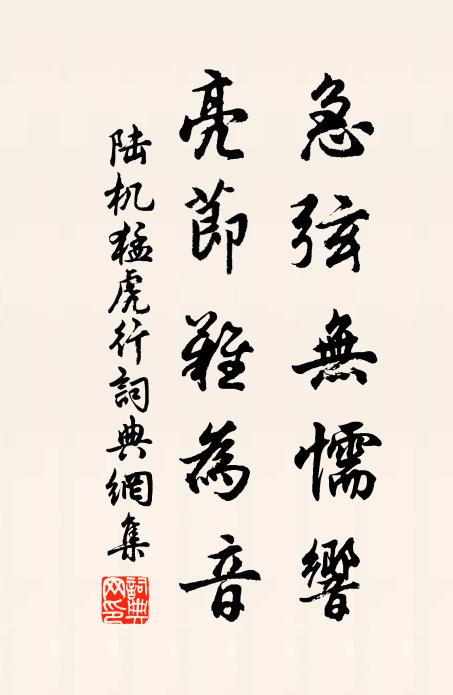 急弦無懦響
亮節難為音
陆机猛虎行詞典網集
詞典网印